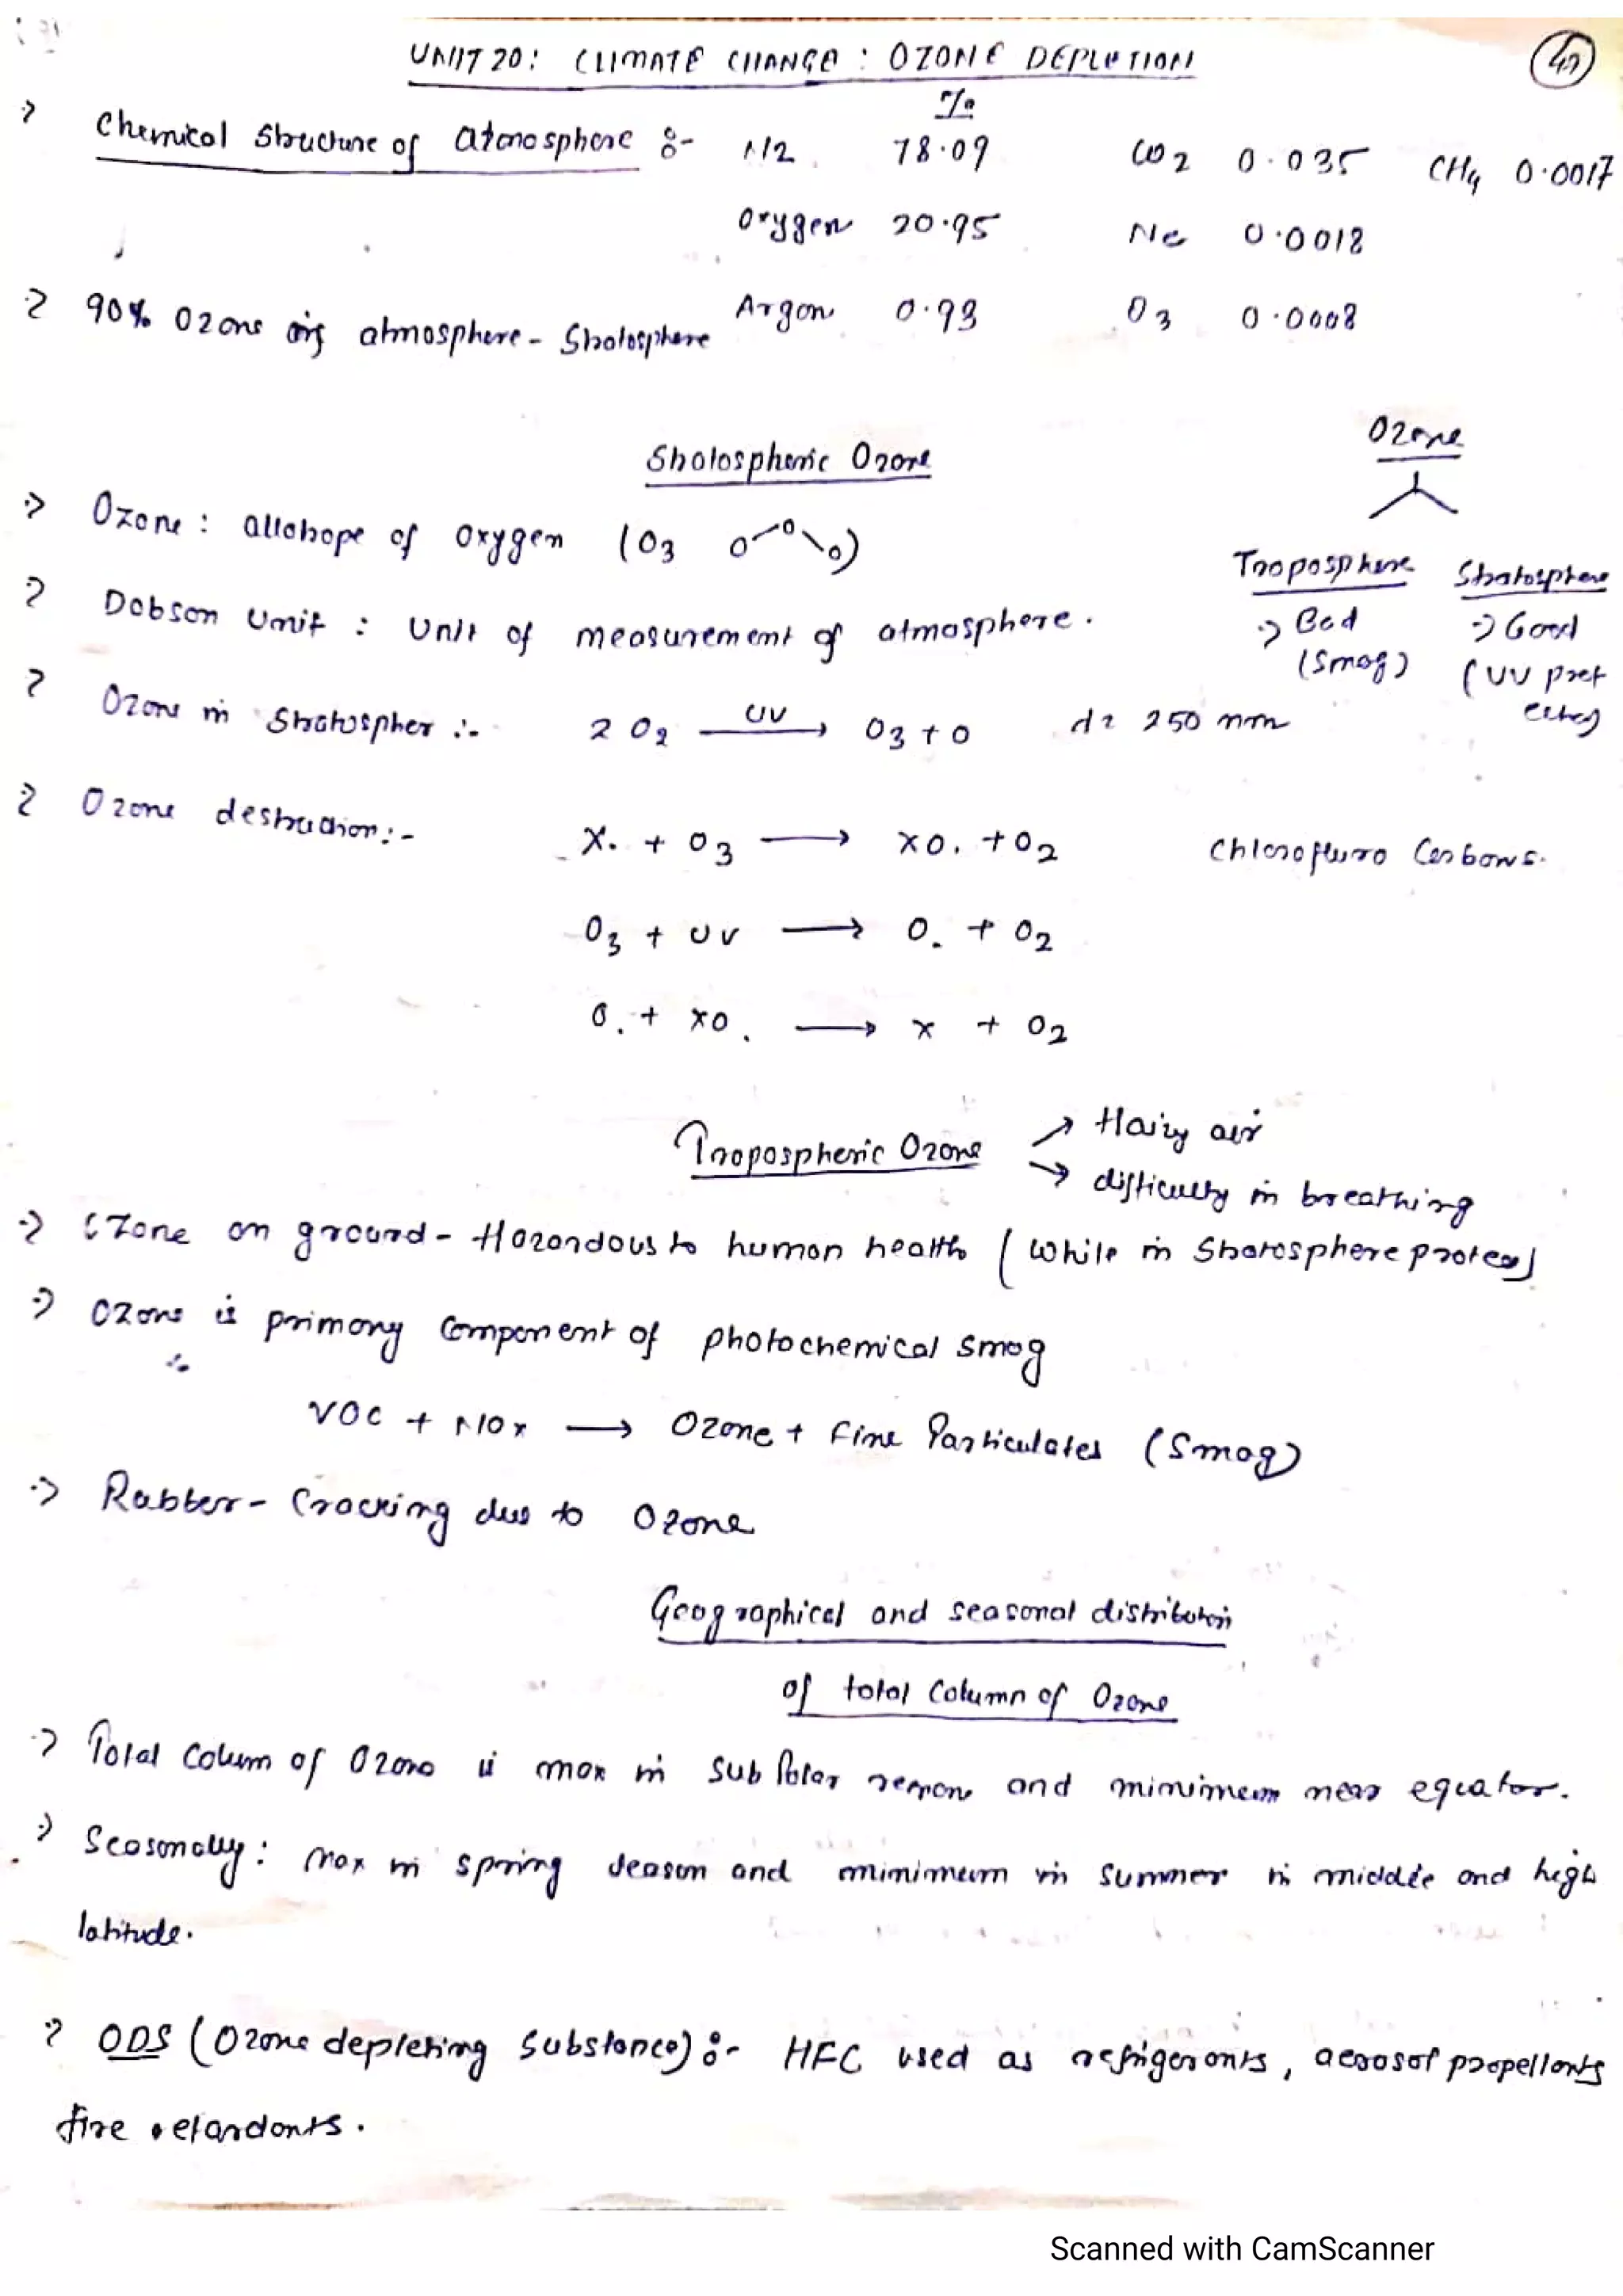 UNIT 20: CLIMATE CHANGE : OZONE DEPLETION
%
→ Chemical Structure of atmosphere :- N2 78.09 CO2 0.035 CH4 0.0017
Oxygen 20.95 Ne 0.0018
→ 90% Ozone atmosphere - Stratosphere Argon 0.93 O3 0.0008
Stratospheric Ozone
Ozone
→ Ozone : allotrope of Oxygen (O3 O O O)
Troposphere Stratosphere
→ Bad → Good
→ Dobson Unit : Unit of measurement of atmosphere.
(Smog) (UV
→ Ozone in Stratospher :- 2 O2 UV → O3 + O 250 nm
→ Ozone destruction :- X. + O3 → XO. + O2 Chlorofluro Carbons.
O3 + UV → O. + O2
O. + XO. → X + O2
Tropospheric Ozone → Hazy air
→ difficulty in breathing
→ Ozone on ground - Hazardous to human health ( While in Stratosphere protect)
→ Ozone is primary Component of photochemical smog
VOC + NOx → Ozone + Fine Particulates (Smog)
→ Rubber - Cracking due to Ozone
Geographical and seasonal distribution
of total Column of Ozone
→ Total Colum of Ozone is max in Sub Polar region and minimum near equator.
→ Seasonally : Max in spring season and minimum in Summer in middle and high
latitude.
→ ODS (Ozone depleting Substance) :- HFC used as refrigerants, aerosol propellants
fire retardants.
Scanned with CamScanner